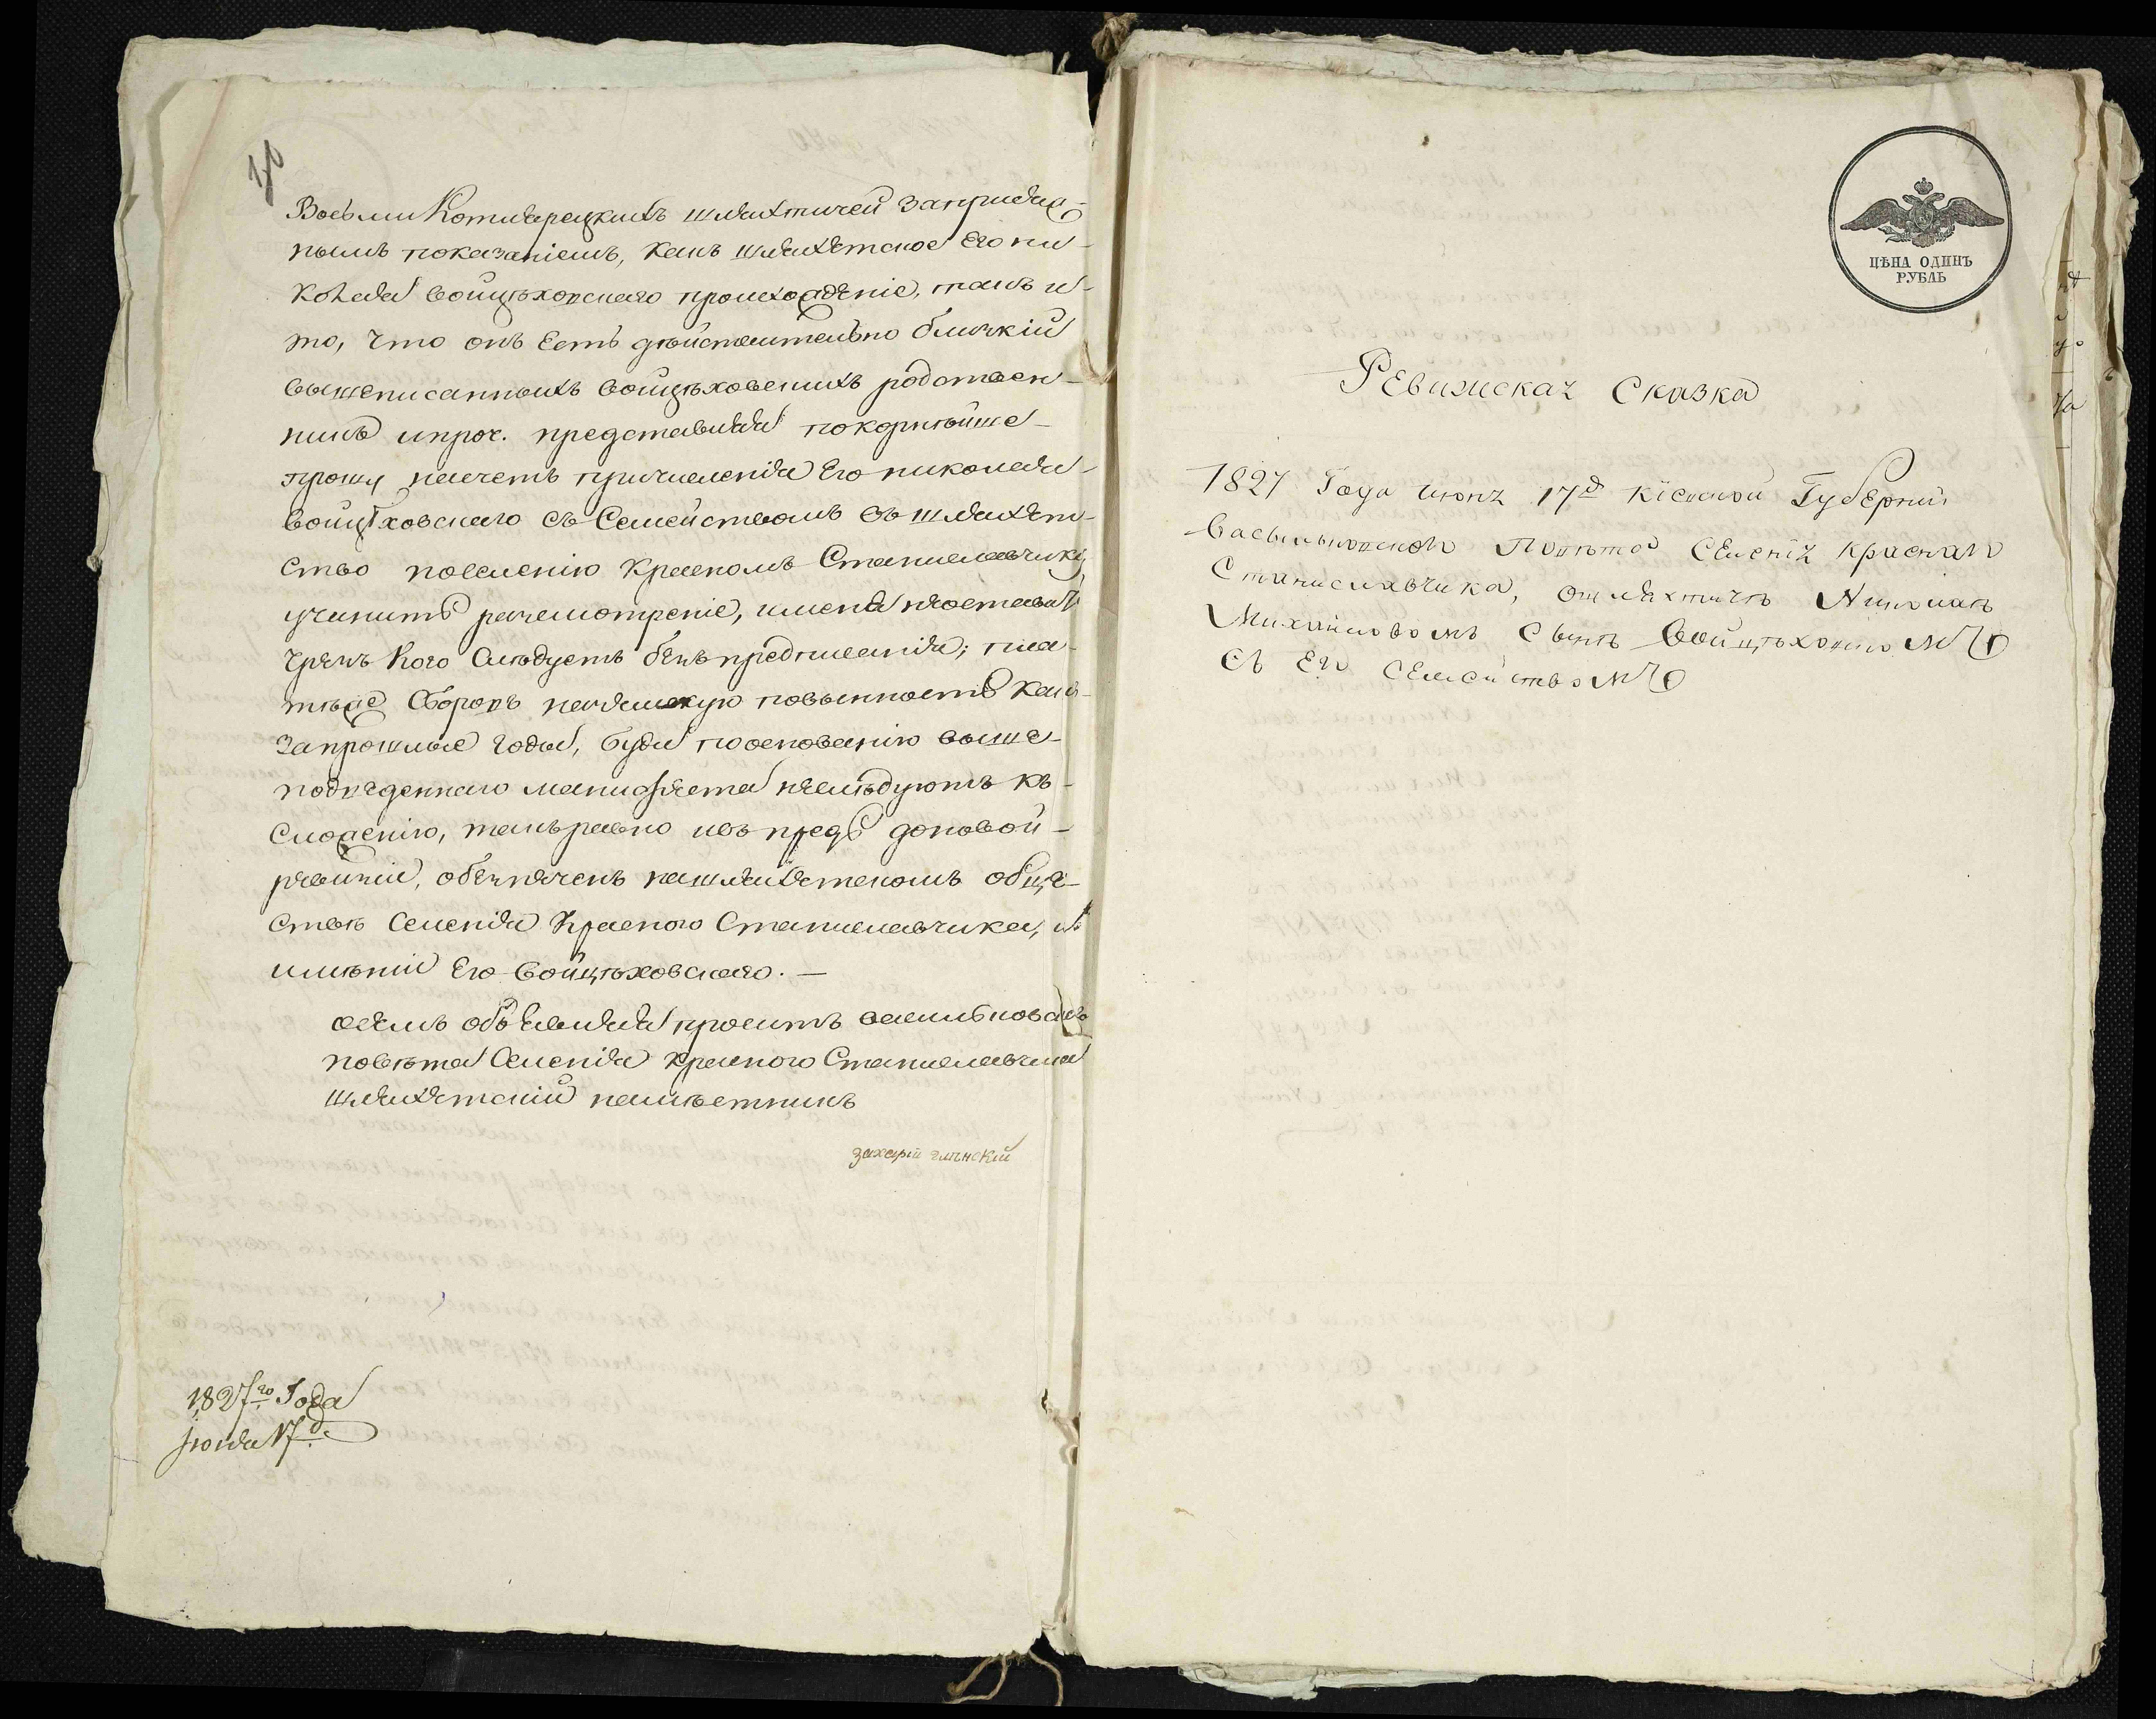 30
Восьми Котлярецкихъ шляхтичей заприсяж-
нымъ показаніемъ, какъ шляхетское Его Ни-
колая Войцѣховскаго происхожденіе, такъ и
то, что онъ Есть дѣйствительно близкій
вышеписанныхъ Войцѣховскихъ родствен-
никъ ипроч. представляя покорнѣйше
прошу насчетъ причисленія Его николая
войцѣховскаго съ Семействомъ въ шляхет-
ство поселенію Красномъ Станиславчику,
учинить разсмотреніе, имена
чрезъ Кого Слѣдуетъ безъ предписанія; пла-
тные Сборовъ повынность какъ
запрошлые годы, буди пооснованію выше-
подведеннаго манифеста неслѣдуютъ къ
Сложенію, такъ равно ивъ предь доновой
ревизіи, обезпеченъ нашляхетскомъ обще-
ствѣ Селенія Красного Станиславчика, и
имѣніи Его Войцѣховскаго. —
осемъ объявляя проситъ васильковскаго
повѣта Селенія Красного Станиславчика
Шляхетскій намѣстникъ
захарій глинскій
1827го Года
Іюня 17 д.
ЦѢНА ОДИНЪ
РУБЛЬ
Ревижская Сказка
1827 Года июня 17д Кіевской Губерніи
Васильковского Повѣта Селенія Красного
Станиславчика, ошляхтичѣ Николаѣ
Михайловомъ Сынѣ Войцѣховскомъ
съ Его Семействомъ